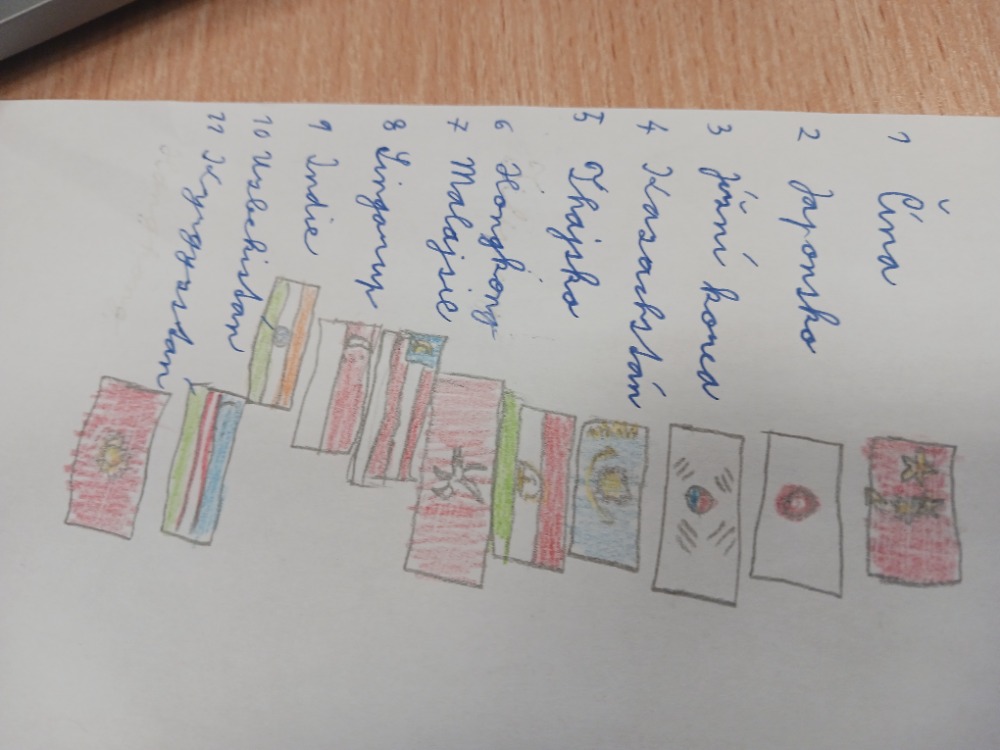 1 Čína
2 Japonsko
3 Jižní korea
4 Kasachstán
5 Thajsko
6 Hongkong
7 Malajsie
8 Singapup
9 Indie
10 Uzbechistan
11 Kyrgyzstan